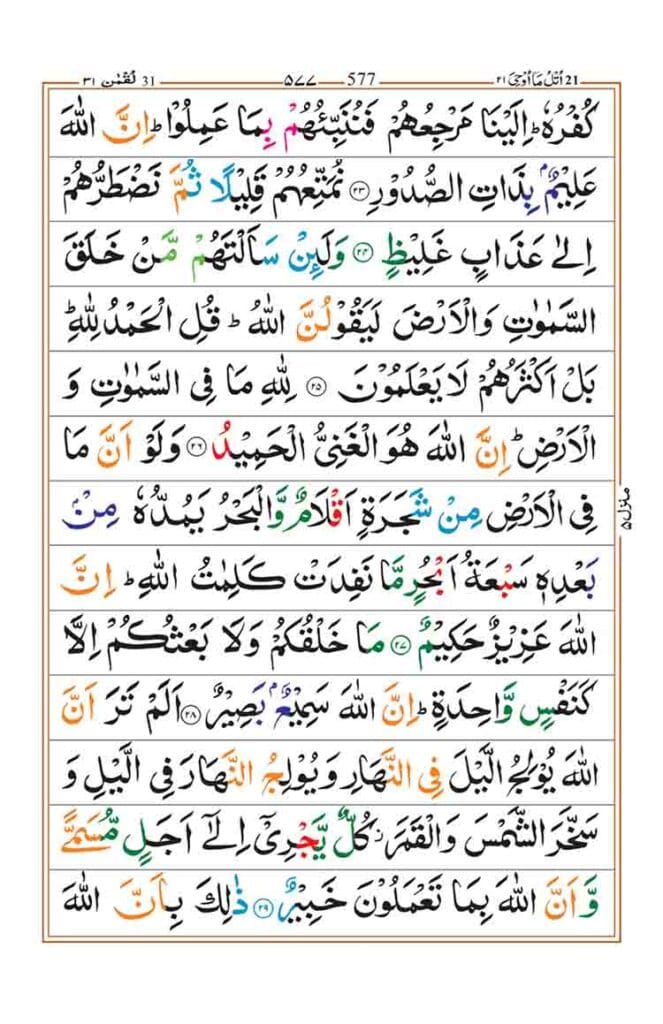 اُتْلُ مَاۤ اُوْحِیَ ۲۱ 21 577 ۵۷۷ لُقْمٰن ۳۱ 31
كُفْرُهٗ ؕ اِلَیْنَا مَرْجِعُهُمْ فَنُنَبِّئُهُمْ بِمَا عَمِلُوْا ؕ اِنَّ اللّٰهَ
عَلِیْمٌۢ بِذَاتِ الصُّدُوْرِ ﴿۲۳﴾ نُمَتِّعُهُمْ قَلِیْلًا ثُمَّ نَضْطَرُّهُمْ
اِلٰی عَذَابٍ غَلِیْظٍ ﴿۲۴﴾ وَلَىِٕنْ سَاَلْتَهُمْ مَّنْ خَلَقَ
السَّمٰوٰتِ وَالْاَرْضَ لَیَقُوْلُنَّ اللّٰهُ ؕ قُلِ الْحَمْدُ لِلّٰهِ ؕ
بَلْ اَكْثَرُهُمْ لَا یَعْلَمُوْنَ ﴿۲۵﴾ لِلّٰهِ مَا فِی السَّمٰوٰتِ وَ
الْاَرْضِ ؕ اِنَّ اللّٰهَ هُوَ الْغَنِیُّ الْحَمِیْدُ ﴿۲۶﴾ وَلَوْ اَنَّ مَا
فِی الْاَرْضِ مِنْ شَجَرَةٍ اَقْلَامٌ وَّالْبَحْرُ یَمُدُّهٗ مِنْۢ
بَعْدِهٖ سَبْعَةُ اَبْحُرٍ مَّا نَفِدَتْ كَلِمٰتُ اللّٰهِ ؕ اِنَّ
اللّٰهَ عَزِیْزٌ حَكِیْمٌ ﴿۲۷﴾ مَا خَلْقُكُمْ وَلَا بَعْثُكُمْ اِلَّا
كَنَفْسٍ وَّاحِدَةٍ ؕ اِنَّ اللّٰهَ سَمِیْعٌۢ بَصِیْرٌ ﴿۲۸﴾ اَلَمْ تَرَ اَنَّ
اللّٰهَ یُوْلِجُ الَّیْلَ فِی النَّهَارِ وَیُوْلِجُ النَّهَارَ فِی الَّیْلِ وَ
سَخَّرَ الشَّمْسَ وَالْقَمَرَ ؗ كُلٌّ یَّجْرِیْۤ اِلٰۤی اَجَلٍ مُّسَمًّی
وَّاَنَّ اللّٰهَ بِمَا تَعْمَلُوْنَ خَبِیْرٌ ﴿۲۹﴾ ذٰلِكَ بِاَنَّ اللّٰهَ
منزل ۵